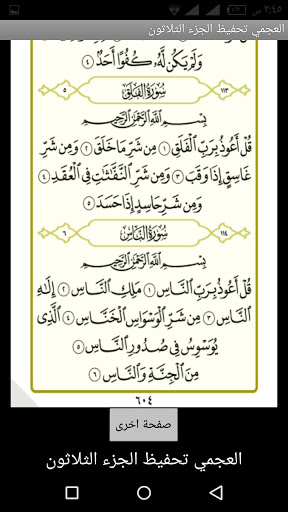 ٢:٤٥
العجمي تحفيظ الجزء الثلاثون
وَلَمْ يَكُن لَّهُۥ كُفُوًا أَحَدٌۢ ٤
٥ سُورَةُ الفَلَقِ ١١٣
بِسْمِ ٱللَّهِ ٱلرَّحْمَٰنِ ٱلرَّحِيمِ
قُلْ أَعُوذُ بِرَبِّ ٱلْفَلَقِ ١ مِن شَرِّ مَا خَلَقَ ٢ وَمِن شَرِّ
غَاسِقٍ إِذَا وَقَبَ ٣ وَمِن شَرِّ ٱلنَّفَّٰثَٰتِ فِى ٱلْعُقَدِ ٤
وَمِن شَرِّ حَاسِدٍ إِذَا حَسَدَ ٥
٦ سُورَةُ النَّاسِ ١١٤
بِسْمِ ٱللَّهِ ٱلرَّحْمَٰنِ ٱلرَّحِيمِ
قُلْ أَعُوذُ بِرَبِّ ٱلنَّاسِ ١ مَلِكِ ٱلنَّاسِ ٢ إِلَٰهِ
ٱلنَّاسِ ٣ مِن شَرِّ ٱلْوَسْوَاسِ ٱلْخَنَّاسِ ٤ ٱلَّذِى
يُوَسْوِسُ فِى صُدُورِ ٱلنَّاسِ ٥
مِنَ ٱلْجِنَّةِ وَٱلنَّاسِ ٦
٦٠٤
صفحة اخرى
العجمي تحفيظ الجزء الثلاثون